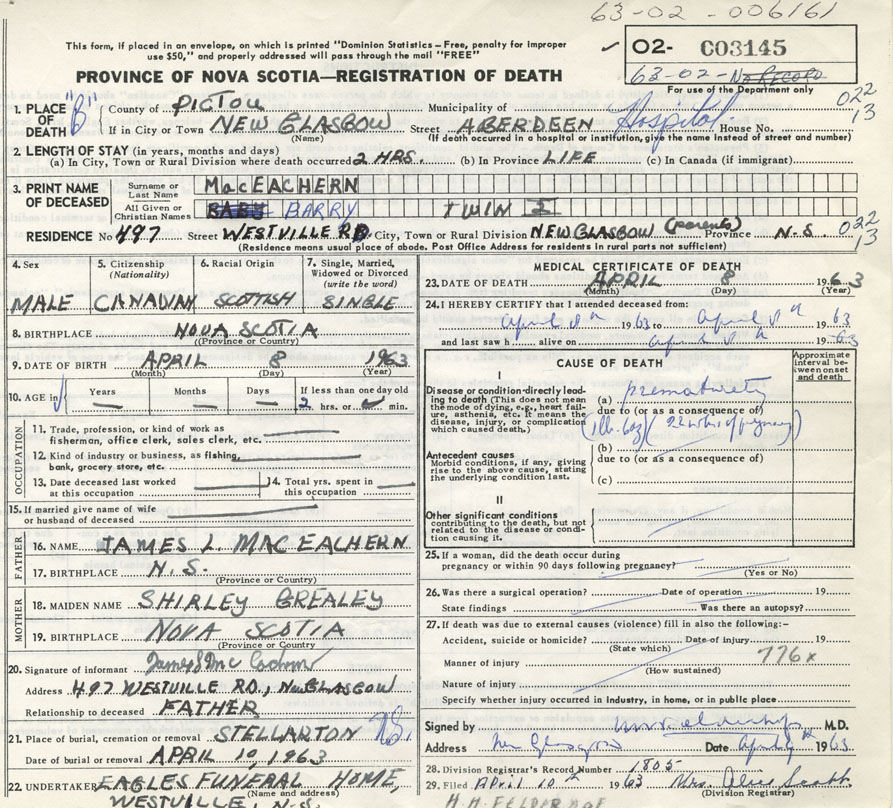 63-02-006161
This form, if placed in an envelope, on which is printed "Dominion Statistics – Free, penalty for improper
use $50," and properly addressed will pass through the mail "FREE"
02- C03145
PROVINCE OF NOVA SCOTIA—REGISTRATION OF DEATH
63-02- No RECORD
For use of the Department only
1. PLACE OF DEATH "B" County of PICTOU Municipality of 022
If in City or Town NEW GLASGOW Street ABERDEEN Hospital House No. 13
(Name) (If death occurred in a hospital or institution, give the name instead of street and number)
2. LENGTH OF STAY (in years, months and days)
(a) In City, Town or Rural Division where death occurred 2 HRS. (b) In Province LIFE (c) In Canada (if immigrant)
3. PRINT NAME OF DECEASED Surname or Last Name MacEACHERN
All Given or Christian Names BABY BARRY TWIN I
RESIDENCE No 497 Street WESTVILLE RD City, Town or Rural Division NEW GLASGOW (parents) Province N-S. 022 13
(Residence means usual place of abode. Post Office Address for residents in rural parts not sufficient)
4. Sex 5. Citizenship (Nationality) 6. Racial Origin 7. Single, Married, Widowed or Divorced (write the word)
MALE CANADIAN SCOTTISH SINGLE
8. BIRTHPLACE NOVA SCOTIA
(Province or Country)
9. DATE OF BIRTH APRIL 8 1963
(Month) (Day) (Year)
10. AGE in Years Months Days If less than one day old
2 hrs. or min.
OCCUPATION
11. Trade, profession, or kind of work as
fisherman, office clerk, sales clerk, etc.
12. Kind of industry or business, as fishing,
bank, grocery store, etc.
13. Date deceased last worked at this occupation 14. Total yrs. spent in this occupation
15. If married give name of wife
or husband of deceased
FATHER
16. NAME JAMES L. MACEACHERN
17. BIRTHPLACE N.S.
(Province or Country)
MOTHER
18. MAIDEN NAME SHIRLEY GREALEY
19. BIRTHPLACE NOVA SCOTIA
(Province or Country)
20. Signature of informant
Address 497 WESTVILLE RD., New GLASGOW
Relationship to deceased FATHER
21. Place of burial, cremation or removal STELLARTON NS.
Date of burial or removal APRIL 10, 1963
22. UNDERTAKER EAGLES FUNERAL HOME,
(Name and address)
WESTVILLE, N.S.
MEDICAL CERTIFICATE OF DEATH
23. DATE OF DEATH APRIL 8 1963
(Month) (Day) (Year)
24. I HEREBY CERTIFY that I attended deceased from:
April 8th 1963 to April 8th 1963
and last saw h alive on April 8th 1963
CAUSE OF DEATH Approximate interval between onset and death
I
Disease or condition directly leading to death (This does not mean the mode of dying, e.g., heart failure, asthenia, etc. It means the disease, injury, or complication which caused death.)
(a) prematurity
due to (or as a consequence of)
(1 lb. 6oz) (22 wks of pregnancy)
Antecedent causes
Morbid conditions, if any, giving rise to the above cause, stating the underlying condition last.
(b)
due to (or as a consequence of)
(c)
II
Other significant conditions
contributing to the death, but not related to the disease or condition causing it.
25. If a woman, did the death occur during
pregnancy or within 90 days following pregnancy?
(Yes or No)
26. Was there a surgical operation? Date of operation 19
State findings Was there an autopsy?
27. If death was due to external causes (violence) fill in also the following:-
Accident, suicide or homicide? Date of injury 19
(State which)
Manner of injury 776x
(How sustained)
Nature of injury
Specify whether injury occurred in industry, in home, or in public place
Signed by M.D.
Address New Glasgow Date April 9th 1963
28. Division Registrar's Record Number 1805
29. Filed April 10th 1963 Mrs. Alice Scott
(Division Registrar)